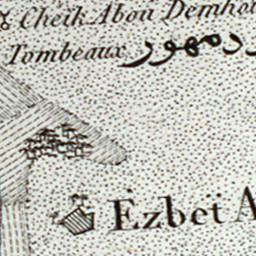 Cheik Abou Demhou
Tombeaux دمهور
Ezbet A